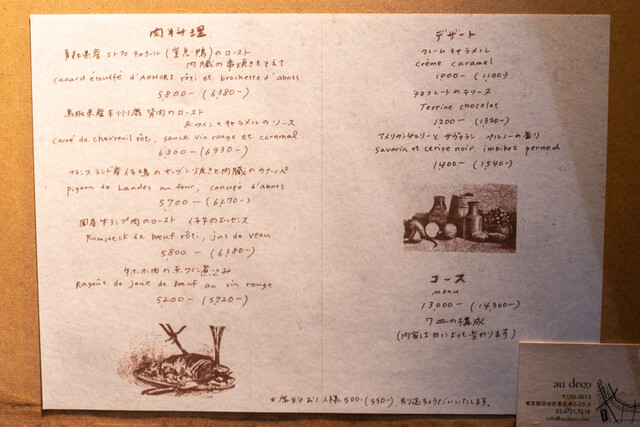 肉料理
青森県産エトフェキャナール(窒息鴨)のロースト
内臓の串焼きをそえて
canard étouffé d'AOMORI rôti et brochette d'abats
5,800-(6380-)
鳥取県産本州鹿 背肉のロースト
赤ワインとキャラメルのソース
carré de chevreuil rôti, sauce vin rouge et caramel
6,300-(6930-)
フランス ランド産 仔鳩のオーブン焼きと内臓のカナッペ
pigeon de Landes au four, canapé d'abats
5,700-(6270-)
国産牛ランプ肉のロースト 仔牛のエッセンス
Rumsteck de bœuf rôti, jus de veau
5800-(6380-)
牛ホホ肉の赤ワイン煮込み
Ragoût de joue de bœuf au vin rouge
5200-(5720-)
デザート
クレームキャラメル
crème caramel
1000-(1100-)
チョコレートのテリーヌ
Terrine chocolat
1200-(1320-)
アメリカンチェリーとサヴァラン ペルノーの香り
savarin et cerise noir, imbibez pernod
1,400-(1,540-)
コース
menu
13000-(14,300-)
7皿の構成
(内容は日によって変わります)
※席料お1人様500-(550-)頂戴いたします。
au deco
〒150-0013
info@audeco.com